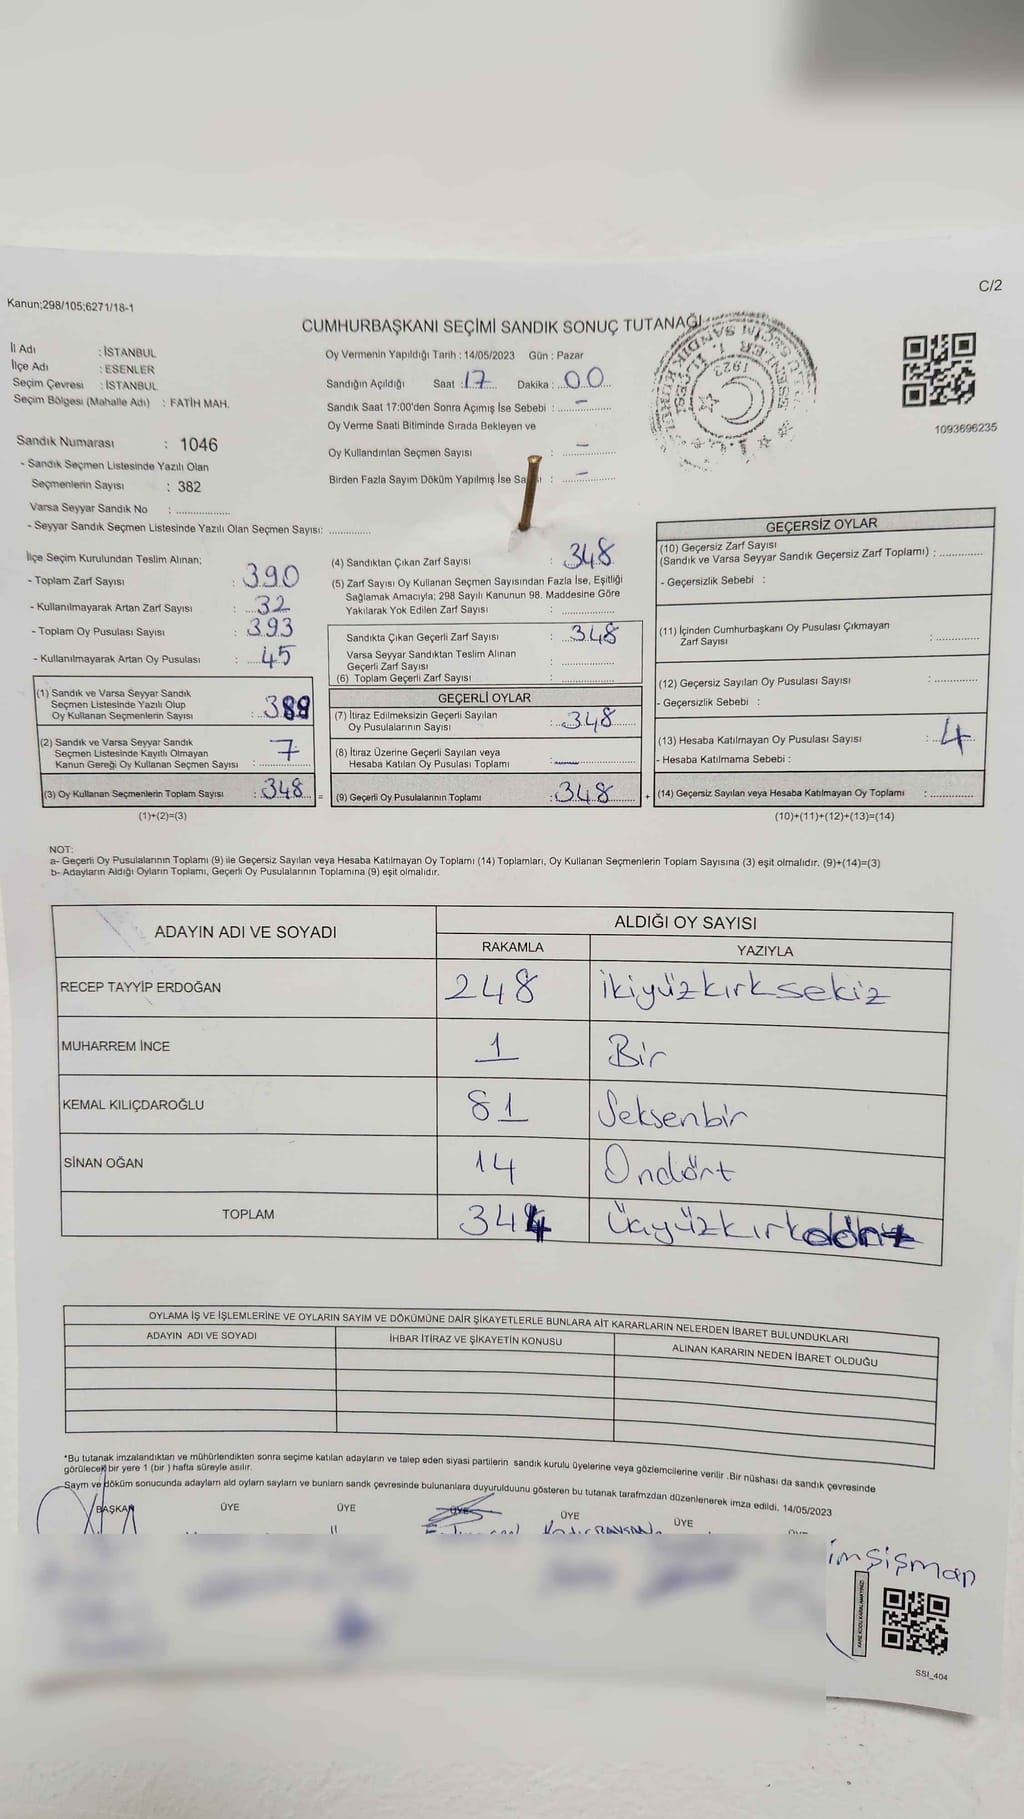 C/2
Kanun;298/105;6271/18-1
CUMHURBAŞKANI SEÇİMİ SANDIK SONUÇ TUTANAĞI
İl Adı : İSTANBUL
İlçe Adı : ESENLER
Seçim Çevresi : İSTANBUL
Seçim Bölgesi (Mahalle Adı) : FATİH MAH.
Sandık Numarası : 1046
- Sandık Seçmen Listesinde Yazılı Olan
Seçmenlerin Sayısı : 382
Varsa Seyyar Sandık No :
- Seyyar Sandık Seçmen Listesinde Yazılı Olan Seçmen Sayısı:
Oy Vermenin Yapıldığı Tarih : 14/05/2023 Gün : Pazar
Sandığın Açıldığı Saat : 17 Dakika : 00
Sandık Saat 17:00'den Sonra Açımış İse Sebebi : -
Oy Verme Saati Bitiminde Sırada Bekleyen ve
Oy Kullandırılan Seçmen Sayısı : -
Birden Fazla Sayım Döküm Yapılmış İse : -
1923
1093696235
İlçe Seçim Kurulundan Teslim Alınan;
- Toplam Zarf Sayısı : 390
- Kullanılmayarak Artan Zarf Sayısı : 32
- Toplam Oy Pusulası Sayısı : 393
- Kullanılmayarak Artan Oy Pusulası : 45
(1) Sandık ve Varsa Seyyar Sandık
Seçmen Listesinde Yazılı Olup
Oy Kullanan Seçmenlerin Sayısı :
(2) Sandık ve Varsa Seyyar Sandık
Seçmen Listesinde Kayıtlı Olmayan
Kanun Gereği Oy Kullanan Seçmen Sayısı : 7
(3) Oy Kullanan Seçmenlerin Toplam Sayısı : 348 =
(1)+(2)=(3)
(4) Sandıktan Çıkan Zarf Sayısı : 348
(5) Zarf Sayısı Oy Kullanan Seçmen Sayısından Fazla İse, Eşitliği
Sağlamak Amacıyla; 298 Sayılı Kanunun 98. Maddesine Göre
Yakılarak Yok Edilen Zarf Sayısı :
Sandıkta Çıkan Geçerli Zarf Sayısı : 348
Varsa Seyyar Sandıktan Teslim Alınan
Geçerli Zarf Sayısı :
(6) Toplam Geçerli Zarf Sayısı :
GEÇERLİ OYLAR
(7) İtiraz Edilmeksizin Geçerli Sayılan
Oy Pusulalarının Sayısı : 348
(8) İtiraz Üzerine Geçerli Sayılan veya
Hesaba Katılan Oy Pusulası Toplamı :
(9) Geçerli Oy Pusulalarının Toplamı : 348 +
GEÇERSİZ OYLAR
(10) Geçersiz Zarf Sayısı
(Sandık ve Varsa Seyyar Sandık Geçersiz Zarf Toplamı) :
- Geçersizlik Sebebi :
(11) İçinden Cumhurbaşkanı Oy Pusulası Çıkmayan
Zarf Sayısı :
(12) Geçersiz Sayılan Oy Pusulası Sayısı :
- Geçersizlik Sebebi :
(13) Hesaba Katılmayan Oy Pusulası Sayısı : 4
- Hesaba Katılmama Sebebi :
(14) Geçersiz Sayılan veya Hesaba Katılmayan Oy Toplamı :
(10)+(11)+(12)+(13)=(14)
NOT:
a- Geçerli Oy Pusulalarının Toplamı (9) ile Geçersiz Sayılan veya Hesaba Katılmayan Oy Toplamı (14) Toplamları, Oy Kullanan Seçmenlerin Toplam Sayısına (3) eşit olmalıdır. (9)+(14)=(3)
b- Adayların Aldığı Oyların Toplamı, Geçerli Oy Pusulalarının Toplamına (9) eşit olmalıdır.
ADAYIN ADI VE SOYADI ALDIĞI OY SAYISI
RAKAMLA YAZIYLA
RECEP TAYYİP ERDOĞAN 248 ikiyüzkırksekiz
MUHARREM İNCE 1 Bir
KEMAL KILIÇDAROĞLU 81 Seksenbir
SİNAN OĞAN 14 Ondört
TOPLAM 344
OYLAMA İŞ VE İŞLEMLERİNE VE OYLARIN SAYIM VE DÖKÜMÜNE DAİR ŞİKAYETLERLE BUNLARA AİT KARARLARIN NELERDEN İBARET BULUNDUKLARI
ADAYIN ADI VE SOYADI İHBAR İTİRAZ VE ŞİKAYETİN KONUSU ALINAN KARARIN NEDEN İBARET OLDUĞU
*Bu tutanak imzalandıktan ve mühürlendikten sonra seçime katılan adayların ve talep eden siyasi partilerin sandık kurulu üyelerine veya gözlemcilerine verilir .Bir nüshası da sandık çevresinde
görülecek bir yere 1 (bir ) hafta süreyle asılır.
Saym ve döküm sonucunda adaylarn ald oylarn saylarn ve bunlarn sandk çevresinde bulunanlara duyurulduunu gösteren bu tutanak tarafmzdan düzenlenerek imza edildi. 14/05/2023
BAŞKAN ÜYE ÜYE ÜYE ÜYE ÜYE
KARE KODU KARALAMAYINIZ!
SSI_404